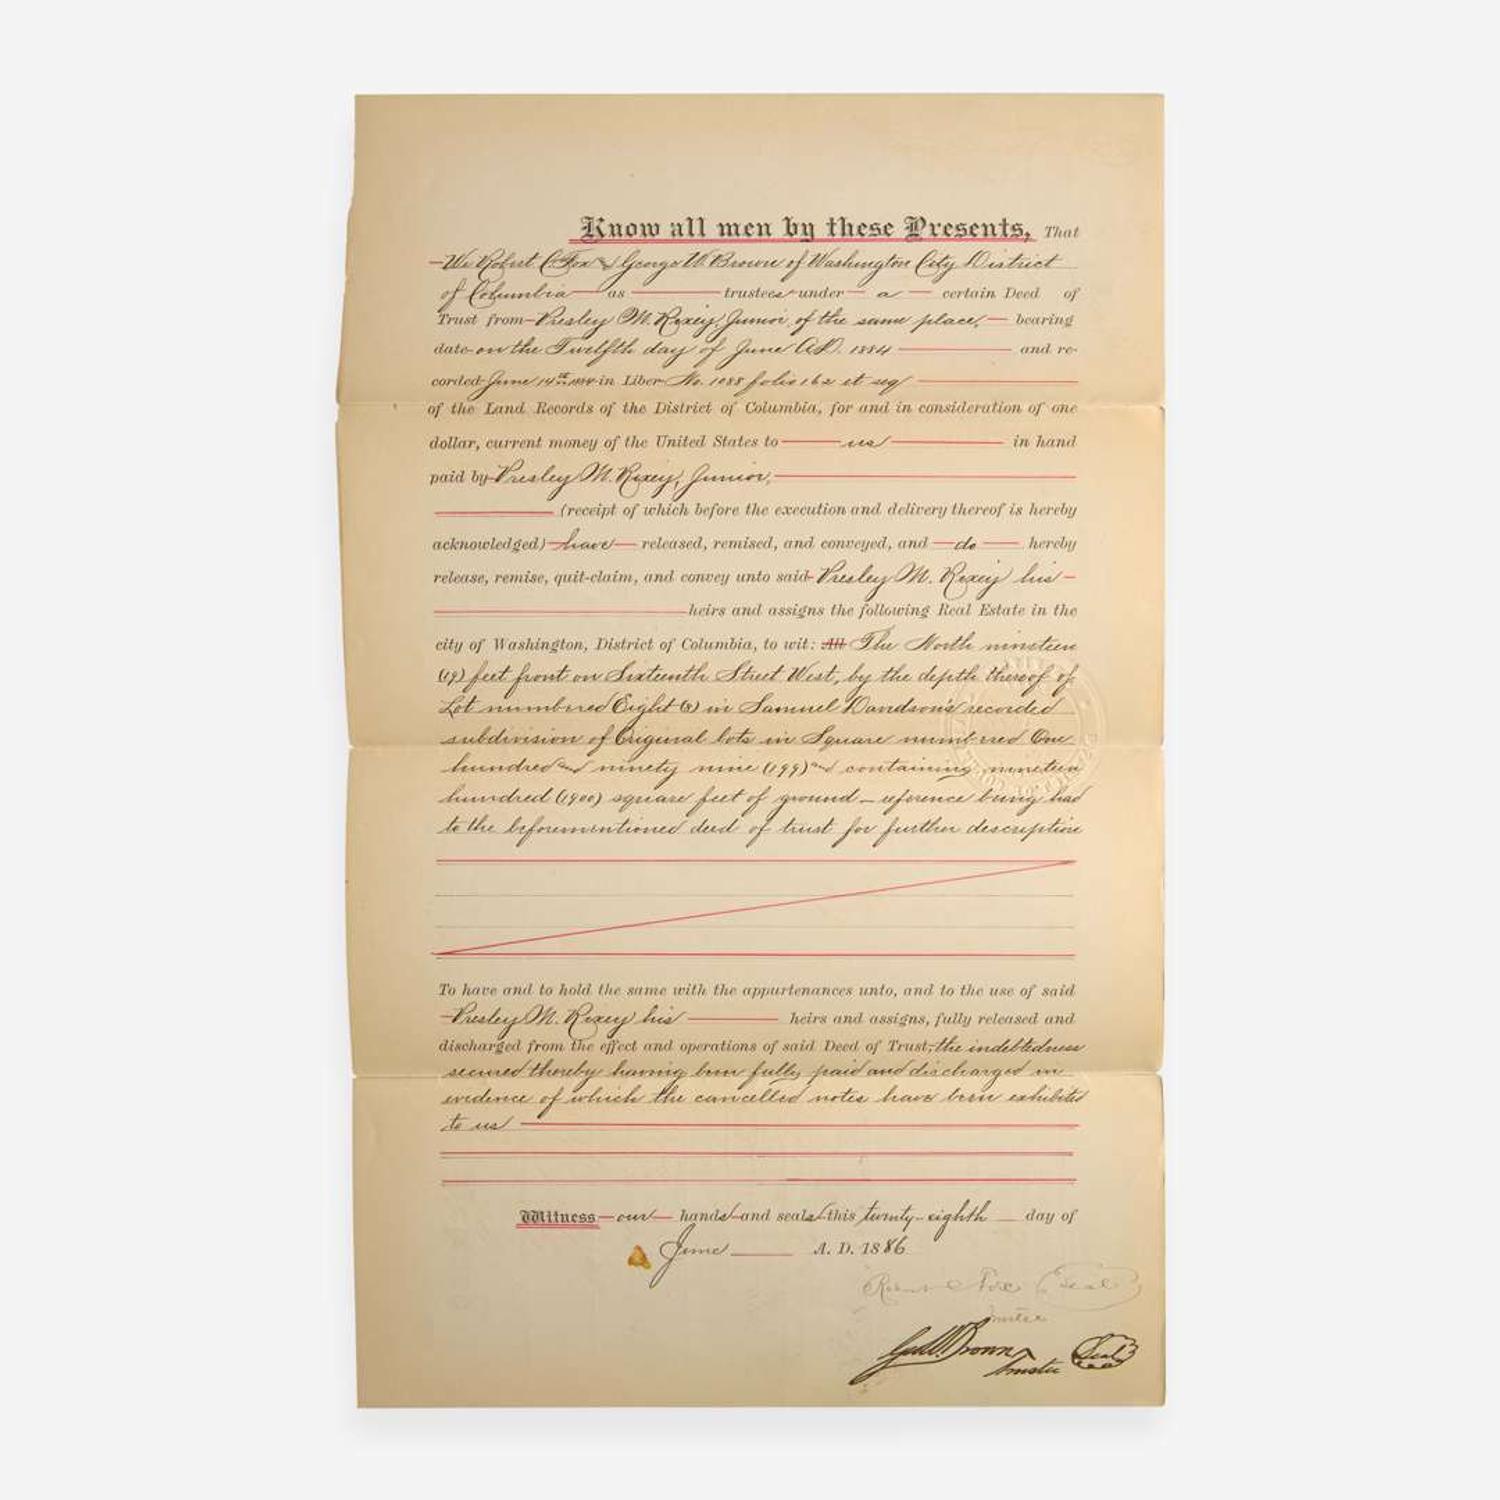 Know all men by these Presents, That
We Robert C. Fox & George W. Brown of Washington City District
of Columbia as trustees under a certain Deed of
Trust from Presley M. Rixey, Junior, of the same place, bearing
date on the Twelfth day of June A.D. 1884 and re-
corded June 14th 1884 in Liber No. 1088 folio 162 et seq
of the Land Records of the District of Columbia, for and in consideration of one
dollar, current money of the United States to us in hand
paid by Presley M. Rixey, Junior,
(receipt of which before the execution and delivery thereof is hereby
acknowledged) have released, remised, and conveyed, and do hereby
release, remise, quit-claim, and convey unto said Presley M. Rixey his
heirs and assigns the following Real Estate in the
city of Washington, District of Columbia, to wit: All The North nineteen
(19) feet front on Sixteenth Street West, by the depth thereof of
Lot numbered Eight (8) in Samuel Davidson's recorded
subdivision of Original lots in Square numbered One
hundred and ninety nine (199) and containing nineteen
hundred (1900) square feet of ground – reference being had
to the beforementioned deed of trust for further description
To have and to hold the same with the appurtenances unto, and to the use of said
Presley M. Rixey his heirs and assigns, fully released and
discharged from the effect and operations of said Deed of Trust, the indebtedness
secured thereby having been fully paid and discharged in
evidence of which the cancelled notes have been exhibited
to us
Witness our hands and seals this twenty-eighth day of
June A. D. 1886
Robert C Fox (Seal)
Trustee
Geo W. Brown Seal
Trustee